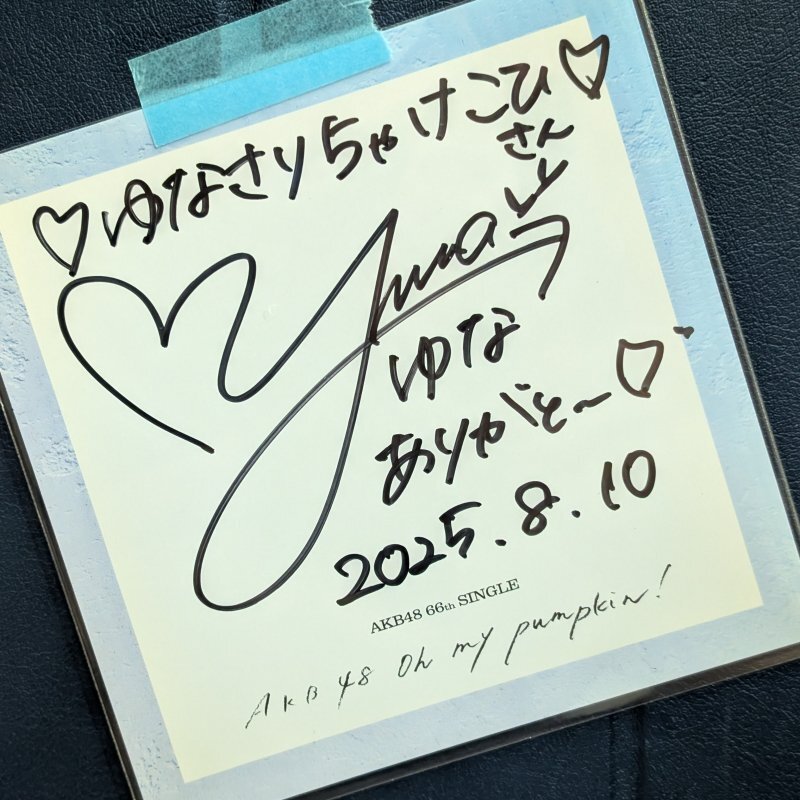 ♡ゆなさりちゃけこひ♡
さん
Yuna
ゆな
ありがと〜♡
2025.8.10
AKB48 66th SINGLE
AKB48 Oh my pumpkin!